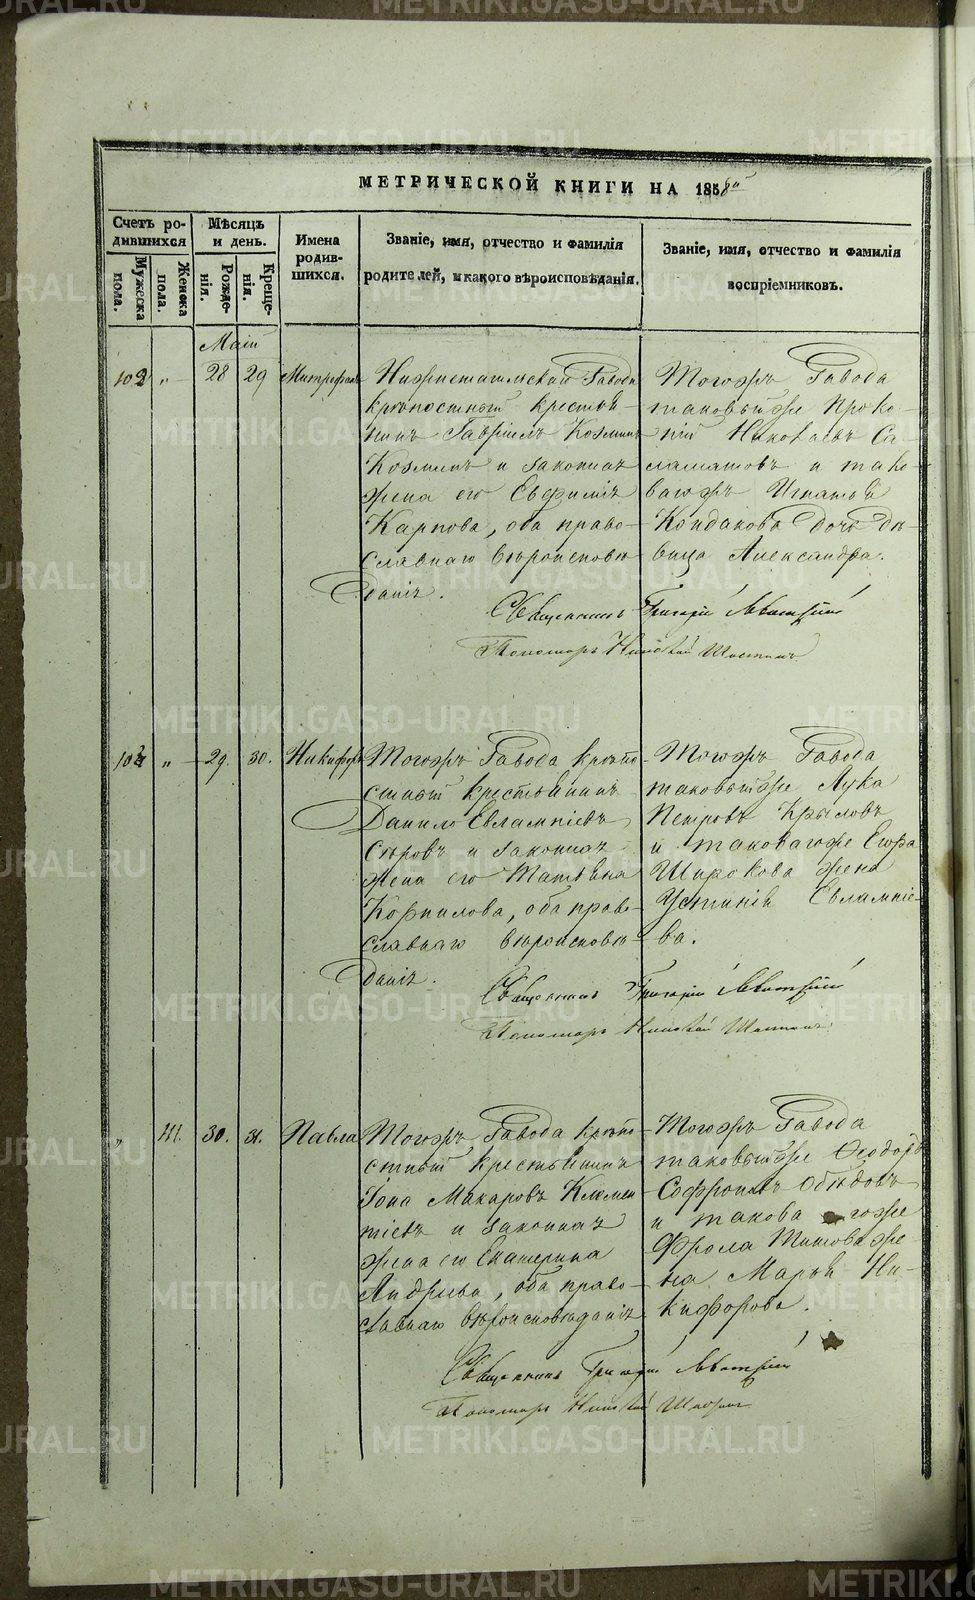 МЕТРИЧЕСКОЙ КНИГИ НА 1858й
Счетъ родившихся
Мѣсяцъ и день.
Имена родившихся.
Званіе, имя, отчество и фамилія родителей, и какого вѣроисповѣданія.
Званіе, имя, отчество и фамилія воспріемниковъ.
Мужеска пола.
Женска пола.
Рожденія.
Крещенія.
Маій
102 „ 28 29 Митрофанъ
Нижнетагильскаго Завода
крѣпостный крестья-
нинъ Гавріилъ Козминъ
Козминъ и законная
жена его Евфимія
Карпова, оба право-
славнаго вѣроисповѣ-
данія.
Тогожъ Завода
таковыйже Проко-
пій Николаевъ Са-
ламатовъ и тако-
вагожъ Игнатья
Кондакова дочь дѣ-
вица Александра.
Священникъ Григорій
Пономарь
103 „ 29. 30. Никифоръ
Тогожъ Завода крѣпо-
стный крестьянинъ
Данило Евлампіевъ
Сѣровъ и законная
жена его Татьяна
Корнилова, оба право-
славнаго вѣроисповѣ-
данія.
Тогожъ Завода
таковыйже Лука
Петровъ Крыловъ
и таковагоже Егора
Широкова жена
Устинья Евлампіе-
ва.
Священникъ Григорій
Пономарь
„ 111. 30. 31. Павла
Тогожъ Завода крѣпо-
стный крестьянинъ
Іона Макаровъ Клемен-
тіевъ и законная
жена его Екатерина
Андреева, оба право-
славнаго вѣроисповѣданія
Тогожъ Завода
таковыйже Ѳеодоръ
Софроновъ Обѣдовъ
и таковагоже
Фрола Титова же-
на Марья Ни-
кифорова.
Священникъ Григорій
Пономарь
METRIKI.GASO-URAL.RU